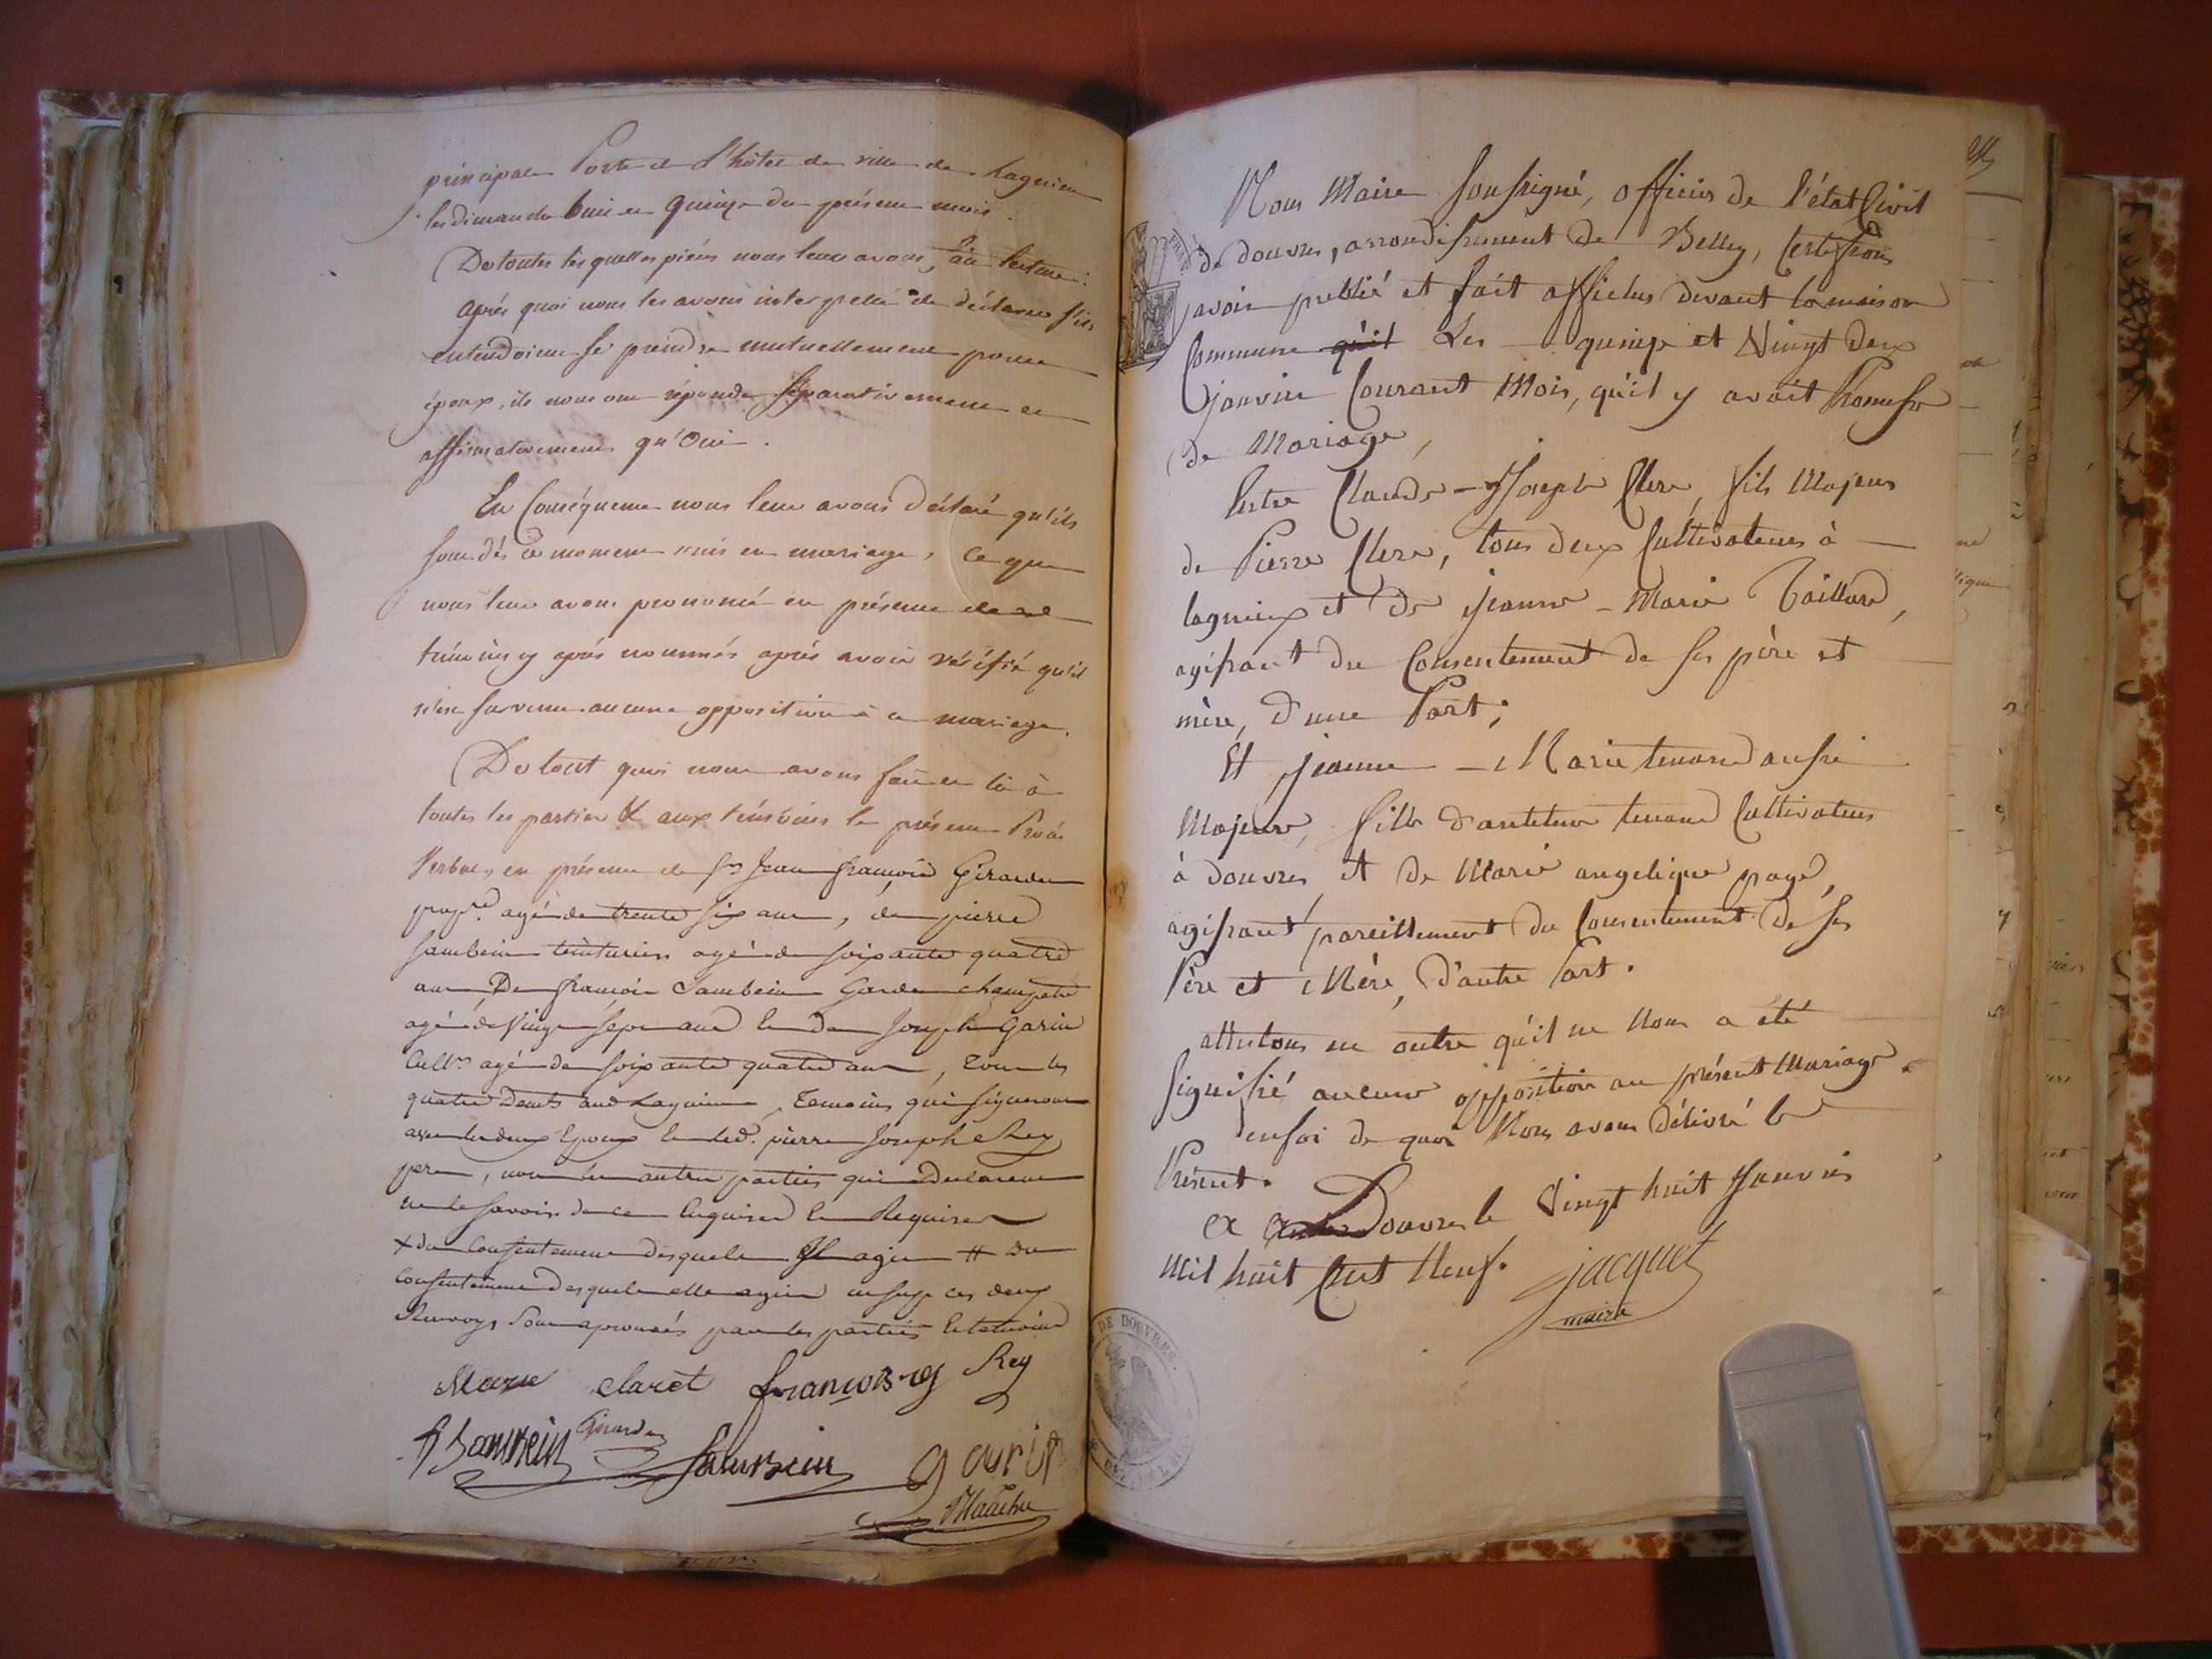 principale Porte de l'hôtel de ville de Lagnieu
les dimanche huit et quinze du présent mois.
De toutes lesquelles pièces nous leur avons fait lecture.
après quoi nous les avons interpellé de déclarer s'ils
entendoient se prendre mutuellement pour
époux, ils nous ont répondu séparativement et
affirmativement qu'Oui.
En Conséquence nous leur avons déclaré qu'ils
sont dès ce moment unis en mariage, ce que
nous leur avons prononcé en présence de
témoins cy après nommés après avoir vérifié qu'il
n'est survenu aucune opposition à ce mariage.
De tout quoi nous avons fait et lû à
toutes les parties & aux témoins le présent Procès
Verbal, en présence de Sr Jean françois Girardin
propre. agé de trente six ans, de pierre
Sambein teinturier agé de soixante quatre
ans, De françois Sambein Garde champetre
agé de Vingt sept ans et de Joseph Garin
Cultr agé de soixante quatre ans, tous les
quatre demts aud Lagnieu, temoins qui signeront
avec les deux Epoux et led. pierre Joseph Rey
pere, non les autres parties qui declarent
ne le savoir de ce Enquises et Requises
+ du Consentement desquels Il agit # du
Consentement desquels elle agit ces deux
Renvoys Sont aprouvés par les parties et temoins
Marie claret françois rey Rey
Sambein Girardin Sambein garin
Nous Maire soussigné, officier de l'état Civil
de douvres, arrondissement de Belley, Certifions
avoir publié et fait afficher devant la maison
Commune qu'il Les quinze et Vingt deux
janvier Courant Mois, qu'il y avoit Promesse
de Mariage,
Entre Claude-Joseph Clerc, fils Majeur
de Pierre Clerc, tous deux Cultivateurs à
lagnieux et de jeanne-Marie Taillard,
agissant du Consentement de ses père et
mère, d'une Part;
Et jeanne-Marie tenand aussi
Majeure, fille d'antelme tenand Cultivateur
à douvres et de Marie angelique pagé,
agissant pareillement du Consentement de ses
Père et Mère, d'autre Part.
attestons en outre qu'il ne Nous a été
signifié aucune opposition au présent Mariage.
enfoi de quoi Nous avons délivré le
Présent.
a Douvres le Vingt huit Janvier
Mil huit Cent Neuf. jacquet
maire
DE DOUVRES